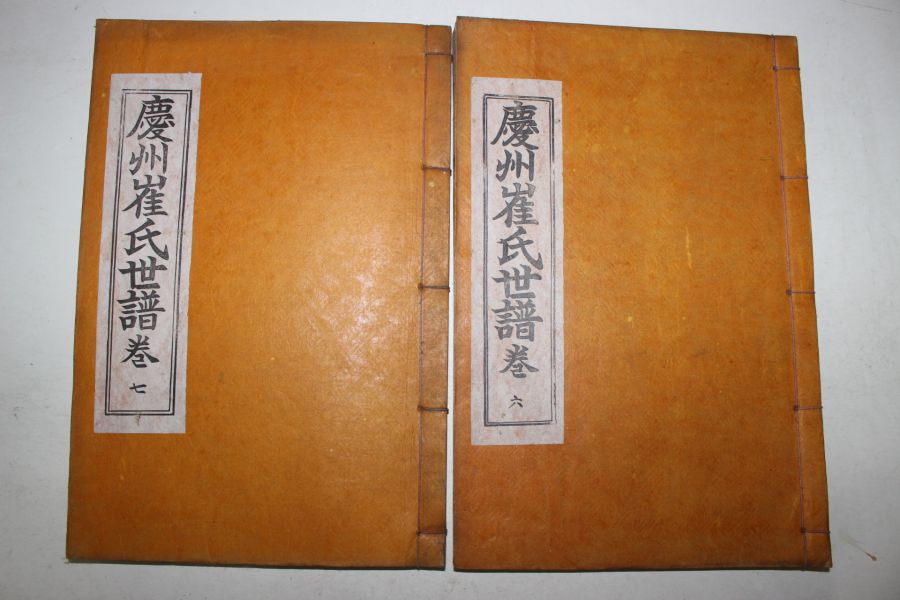 慶州崔氏世譜 卷 七
慶州崔氏世譜 卷 六